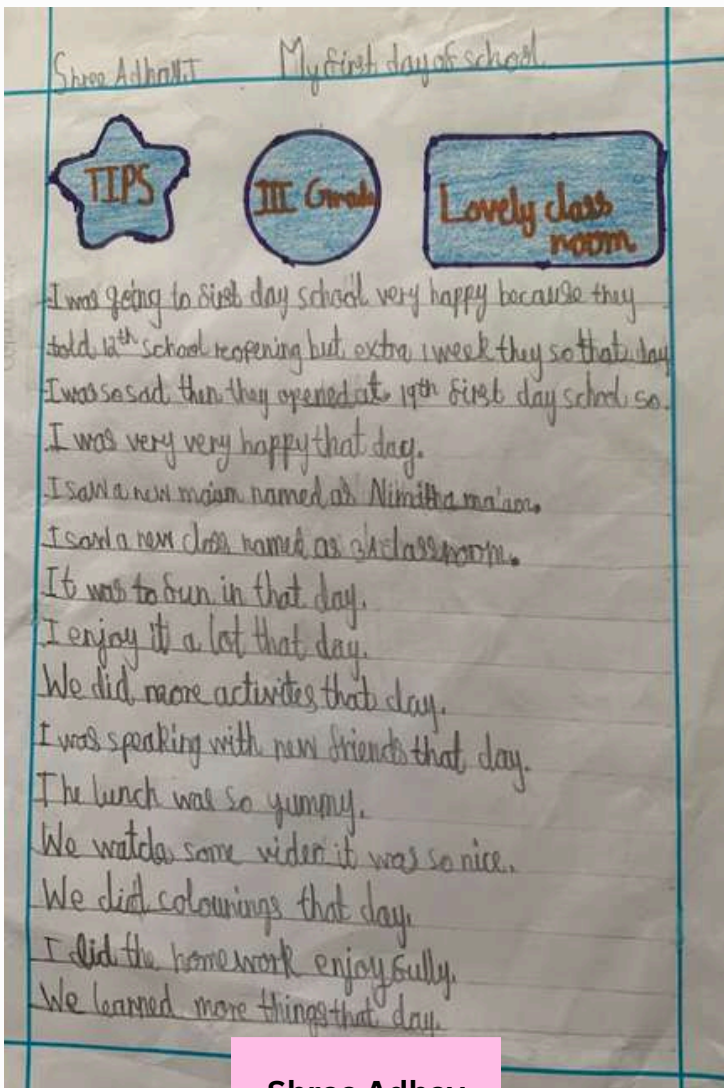 Shree Adhav.I My first day of school
TIPS
III Grade
Lovely class
room
I was going to first day school very happy because they
told 12th school reopening but extra 1 week they so that day
I was so sad then they opened at 19th first day school so.
I was very very happy that day.
I saw a new ma'am named as Nimitha ma'am.
I saw a new class named as 3A classroom.
It was to fun in that day.
I enjoy it a lot that day.
We did more activites that day.
I was speaking with new friends that day.
The lunch was so yummy.
We some video it was so nice.
We did colourings that day.
I did the homework enjoyfully.
We learned more things that day.
Shree Adhav